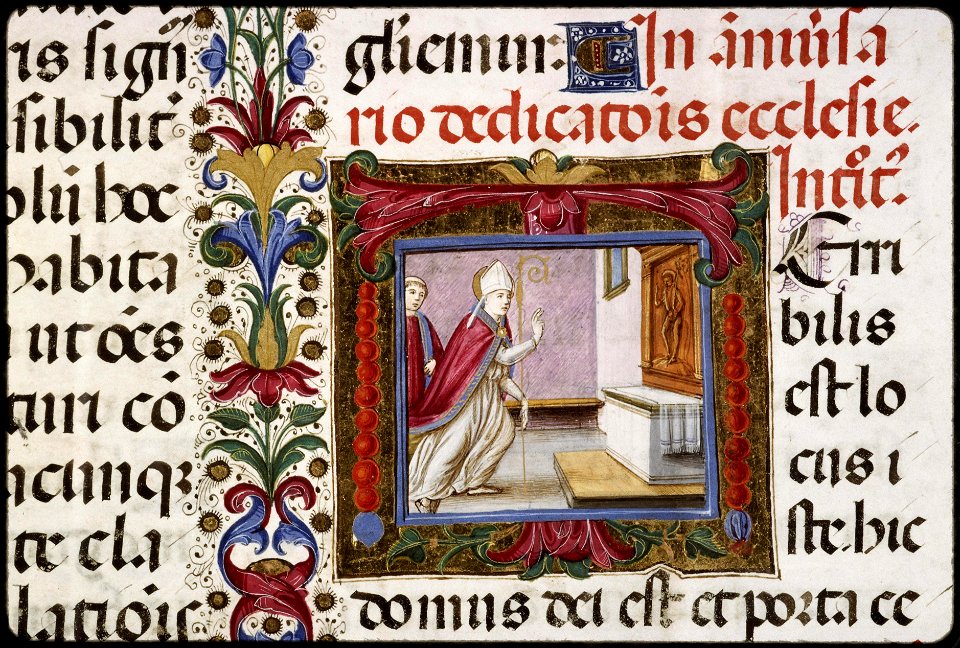 ris signi
sibilit
olii hoc
habita
ut oēs
turi cō
cunqꝫ
te cla
latiōis
gliemur: In ānīusa
rio dedicatōis ecclesie.
Intōit.
Erri
bilis
est lo
cus i
ste. hic
domus dei est et porta ce